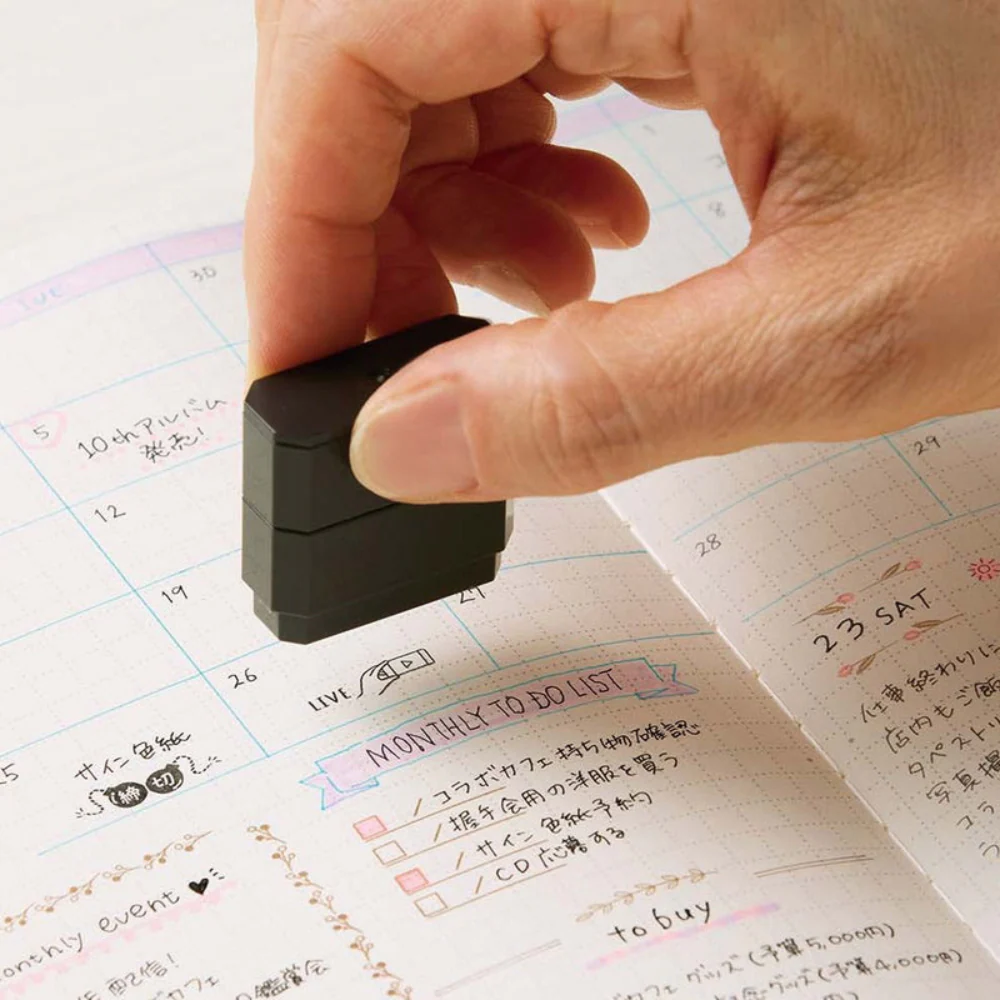 TUE
30
1
8
5
10thアルバム
発売!
12
19
26
27
LIVE
サイン色紙
締切
MONTHLY TO DO LIST
コラボカフェ持ち物確認
握手会用の洋服を買う
サイン色紙予約
CD応募する
monthly event
配信!
カフェ
鑑賞会
to buy
カフェグッズ(予算5,000円)
会グッズ(予算4,000円)
28
29
23 SAT
仕事終わりに
店内もご飯
タペスト
写真撮
コラ